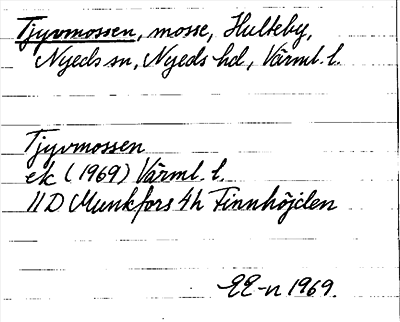 Tjyvmossen, mosse, Hulteby,
Nyeds sn, Nyeds hd, Värml. l.
Tjyvmossen
ek (1969) Värml. l.
11D Munkfors 4h Finnhöjden
EE-n 1969.